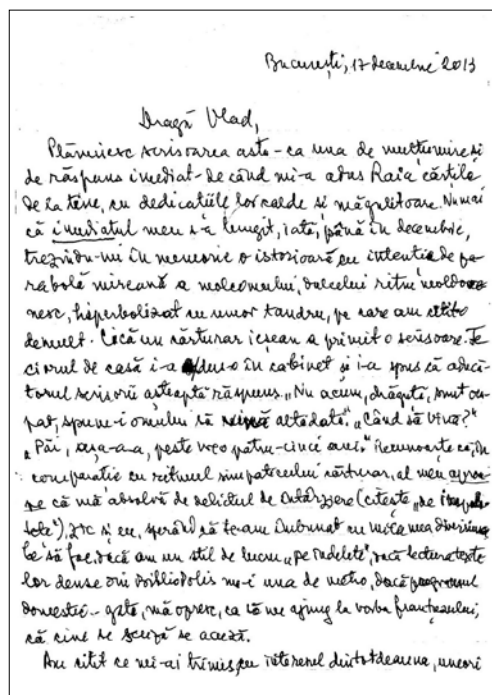 București, 17 decembrie 2013
Dragă Vlad,
Plănuiesc scrisoarea asta – ca una de mulțumire și
de răspuns imediat – de când mi-a adus Raia cărțile
de la tine, cu dedicațiile lor calde și măgulitoare. Numai
că imediatul meu s-a lungit, iată, până în decembrie,
trezindu-mi în memorie o istorioară cu intenție de pa-
rabolă mireană a molcomului, dulcelui ritm moldove-
nesc, hiperbolizat cu umor tandru, pe care am citit-o
demult. Cică un cărturar ieșean a primit o scrisoare. Fe-
ciorul de casă i-a dus-o în cabinet și i-a spus că aducă-
torul scrisorii așteaptă răspuns. „Nu acum, drăguță, sunt ocu-
pat, spune-i omului să vină altădată." „Când să vină?"
„Păi, așa-a-a, peste vreo patru-cinci ani." Recunoaște că, în
comparație cu ritmul simpaticului cărturar, al meu
că mă absolvă de delictul de întârziere (citește „de
"). Zic și eu, sperând că te-am îmbunat cu mica mea
Ce să fac, dacă am un stil de lucru „pe îndelete", dacă lectura texte-
lor dense din Bibliopolis nu-i una de metrou, dacă programul
domestic – gata, mă opresc, ca să nu ajung la vorba franțuzului,
că cine se scuză se acuză.
Am citit ce mi-ai trimis, cu interesul dintotdeauna, uneori